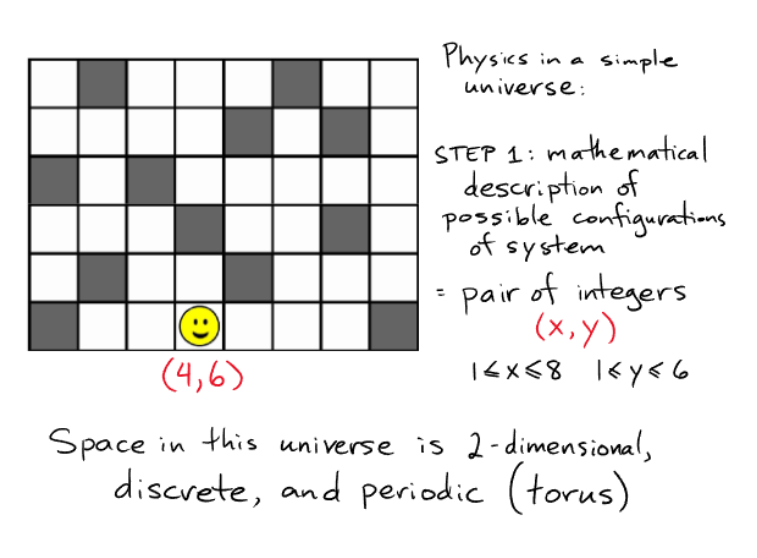 Physics in a simple
universe:
STEP 1: mathematical
description of
possible configurations
of system
= pair of integers
(x,y)
1≤x≤8 1≤y≤6
(4,6)
Space in this universe is 2-dimensional,
discrete, and periodic (torus)